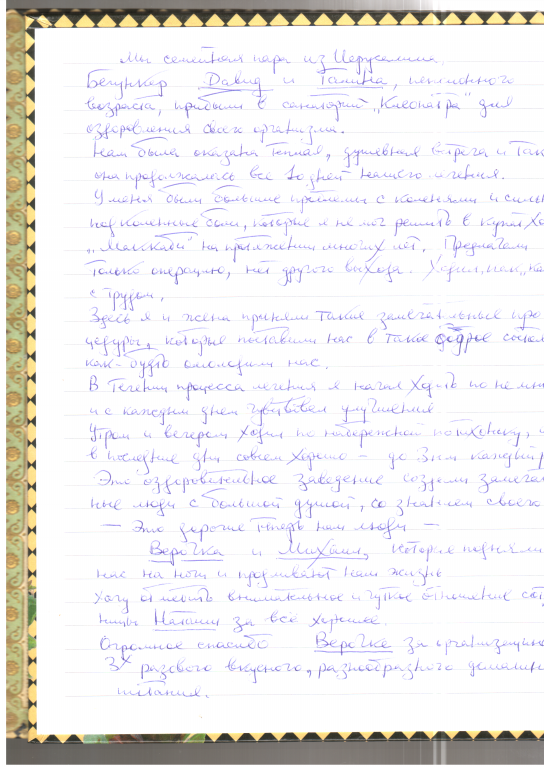 Мы семейная пара из Иерусалима,
Бегункер Давид и Галина, пенсионного
возраста, прибыли в санаторий „Клеопатра" для
оздоровления своего организма.
Нам была оказана теплая, душевная встреча и так
она продолжалась все 10 дней нашего лечения.
У меня были большие проблемы с коленями и силь
под коленные боли, которые я не мог решить в купат Хо
„Маккаби" на протяжении многих лет. Предлагали
только операцию, нет другого выхода. Ходил,
с трудом.
Здесь я и жена приняли такие замечательные про
цедуры, которые поставили нас в такое бодрое состоя
как-будто омолодили нас.
В течении процесса лечения я начал ходить по не мн
и с каждым днем чувствовал улучшения.
Утром и вечером ходил по набережной по
в последние дни совсем хорошо - до 3 км каждый р
Это оздоровительное заведение создали замечат
ные люди с большой душой, со знанием своего
— Это дорогие теперь нам люди —
Верочка и Михаил, которые подняли
нас на ноги и продлевают нам жизнь
Хочу отметить внимательное и чуткое отношение сот
ницы Наташи за всё хорошее.
Огромное спасибо Верочке за организацию
3х разового вкусного, разнообразного домашн
питания.